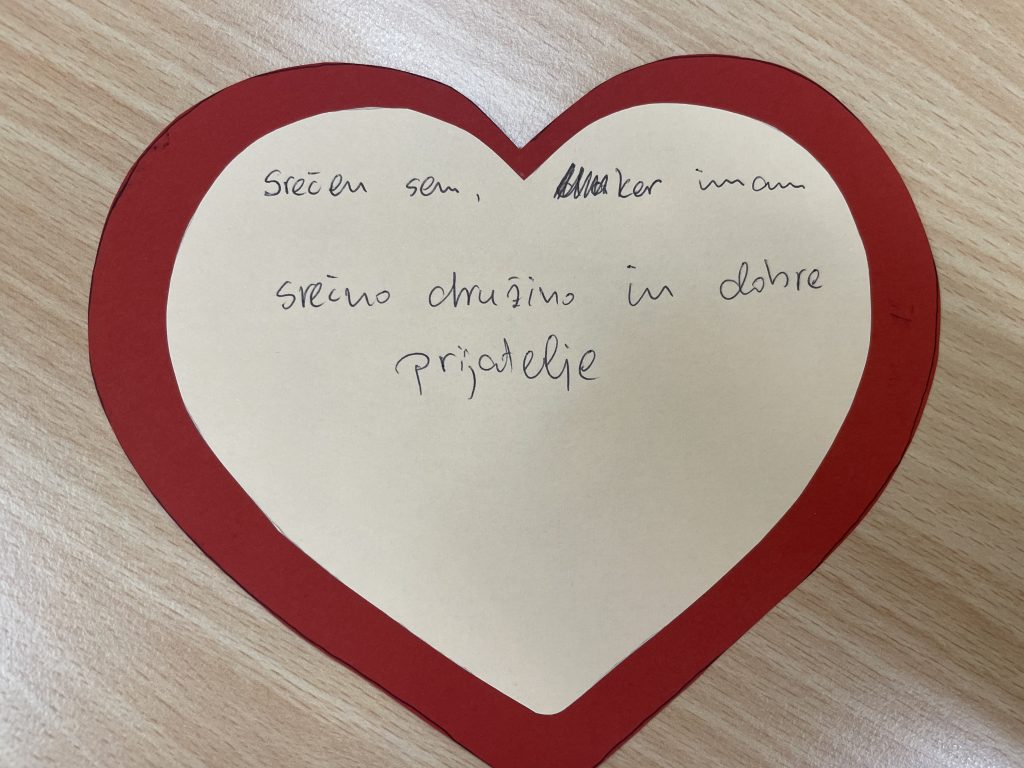 srečen sem, ker imam
srečno družino in dobre
prijatelje